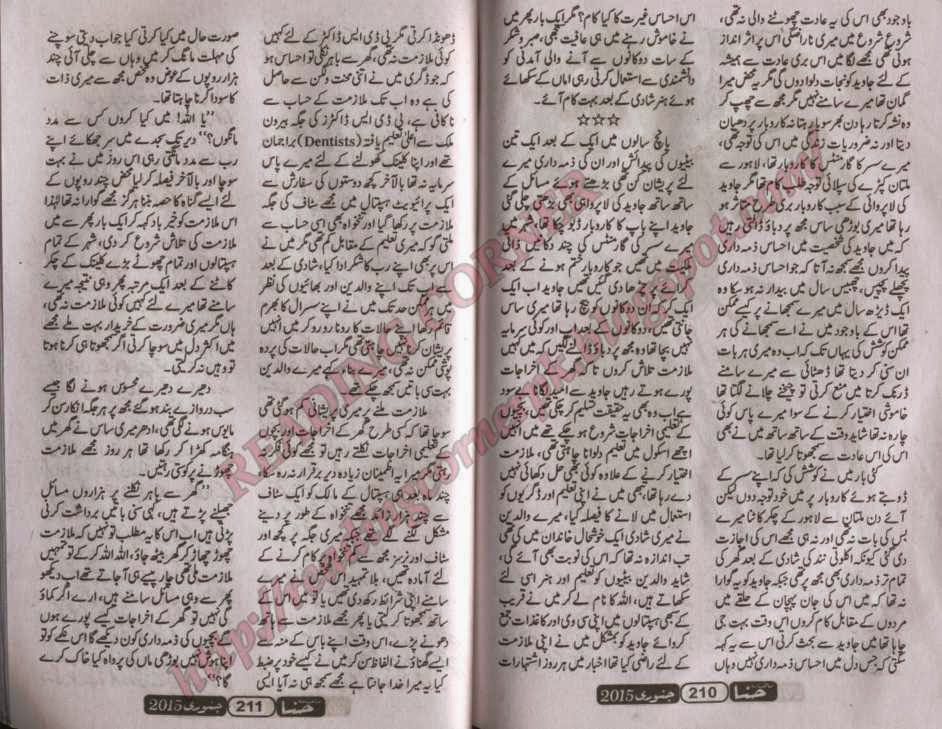 باوجود بھی اس کی یہ عادت چھوٹنے والی نہ تھی،
شروع شروع میں میری ناراضگی اس پر اثر انداز
ہوئی تھی مجھے لگا میں اس بری عادت سے ہمیشہ
کے لئے جاوید کو نجات دلوا دوں گی مگر یہ محض میرا
گمان تھا میرے سامنے نہیں مگر مجھ سے چھپ کر
وہ نشہ کرتا رہا دن بھر سویا رہتا نہ کاروبار پر دھیان
دیتا اور نہ ضروریات زندگی میں اس کی توجہ تھی،
میرے سسر کا گارمنٹس کا کاروبار تھا، لاہور سے
ملتان کپڑے کی سپلائی توجہ طلب کام تھا مگر جاوید
کی لاپروائی کے سبب کاروبار بری طرح متاثر ہو
رہا تھا میری بوڑھی ساس مجھ پر دباؤ ڈالتی رہیں
کہ میں جاوید کی شخصیت میں احساس ذمہ داری
پیدا کروں مجھے سمجھ نہ آتا کہ جو احساس ذمہ داری
پچھلے پچیس، چھبیس سال میں بیدار نہ ہو سکا وہ
ایک ڈیڑھ سال میں میرے سمجھانے پر کیسے ممکن
تھا اس کے باوجود میں نے اسے سمجھانے کی ہر
ممکن کوشش کی یہاں تک کہ اب وہ میری ہر بات
ان سنی کر دیتا تھا، ڈھٹائی سے میرے سامنے
ڈرنک کرتا میں منع کرتی تو چیخنے چلانے لگتا تھا
خاموشی اختیار کرنے کے سوا میرے پاس کوئی
چارہ نہ تھا شاید وقت کے ساتھ ساتھ میں نے بھی
اس کی اس عادت سے سمجھوتا کر لیا تھا۔
کئی بار میں نے کوشش کی کہ اپنے سسر کے
ڈوبتے ہوئے کاروبار پر میں خود توجہ دوں لیکن
آئے دن ملتان سے لاہور کے چکر کاٹنا میرے
بس کی بات نہ تھی اور نہ ہی مجھے اس کی اجازت
دی گئی کیونکہ اکلوتی نند کی شادی کے بعد گھر کی
تمام تر ذمہ داری بھی مجھ پر تھی جبکہ جاوید کو یہ گوارا
نہ تھا کہ میں اس کی جان پہچان کے حلقے میں
مردوں کے مقابل کام کروں اس وقت بہت جی
چاہا تھا میں جاوید سے بحث کرتی اس سے یہ کہہ
سکتی کہ جس دل میں احساس ذمہ داری نہیں وہاں
اس احساس غیرت کا کیا کام؟ مگر ایک بار پھر میں
نے خاموش رہنے میں ہی عافیت تھی، صبر و شکر
کے سات دوکانوں سے آنے والی آمدنی کو
دانشمندی سے استعمال کرتی رہی اماں کے سکھائے
ہوئے ہنر شادی کے بعد بہت کام آئے۔
☆☆☆
پانچ سالوں میں ایک کے بعد ایک تین
بیٹیوں کی پیدائش اور ان کی ذمہ داری میرے
لئے پریشان کن تھی بڑھتے ہوئے مسائل کے
ساتھ ساتھ جاوید کی لاپرواہی بھی بڑھتی چلی گئی
جاوید اپنے باپ کا کاروبار ڈبو چکا تھا،
میرے سسر کی گارمنٹس کی چند دکانیں ذاتی
ملکیت میں تھیں جو کاروبار ختم ہونے کے بعد
کرائے پر چڑھا دی تھیں جاوید اب ایک
ایک کر کے ان دوکانوں کو بیچ رہا تھا میری ساس
جانتی تھیں دوکانوں کے بعد اب اور کوئی سرمایہ
نہیں بچا تھا وہ مجھ پر دباؤ ڈالنے لگیں کہ میں کہیں
ملازمت تلاش کروں تاکہ گھر کے اخراجات
پورے ہوتے رہیں جاوید سے امید لگانا بے سود
ہے اب وہ بھی یہ حقیقت تسلیم کر چکی تھیں، بچیوں
کے تعلیمی اخراجات شروع ہو چکے تھے میں انہیں
اچھے اسکول میں تعلیم دلوانا چاہتی تھی، ملازمت
اختیار کرنے کے علاوہ کوئی بھی حل دکھائی نہیں
دے رہا تھا، تبھی میں نے اپنی تعلیم اور ڈگریوں کو
استعمال میں لانے کا فیصلہ کیا، میرے والدین
نے میری شادی ایک خوشحال خاندان میں کی تھی
تب اندازہ نہ تھا کہ اس کی نوبت بھی آئے گی،
شاید والدین بیٹیوں کو تعلیم اور ہنر اسی لئے
سکھاتے ہیں، اللہ کا نام لے کر میں نے قریب
کے سبھی ہسپتالوں میں اپنی سی وی اور کاغذات جمع
کروائے جاوید کو بمشکل میں نے اپنی ملازمت
کے لئے راضی کیا تھا اخبار میں ہر روز اشتہارات
حنا 210 جنوری 2015
ڈھونڈا کرتی مگر بی ڈی ایس ڈاکٹر کے لئے کہیں
کوئی ملازمت نہ تھی، گھر سے باہر نکلی تو احساس ہو
کہ جو ڈگری میں نے اتنی محنت و لگن سے حاصل
کی ہے وہ اب تک ملازمت کے حساب سے
ناکافی ہے، بی ڈی ایس ڈاکٹرز کی جگہ بیرون
ملک سے اعلیٰ تعلیم یافتہ (Dentists) براجمان
تھے اور اپنا کلینک کھولنے کے لئے میرے پاس
سرمایہ نہ تھا بالآخر کچھ دوستوں کی سفارش سے
ایک پرائیویٹ ہسپتال میں مجھے سٹاف کی جگہ
ملازمت پر رکھا گیا اور تنخواہ بھی اسی حساب سے
ملتی جو کہ میری تعلیم کے مقابل کم تھی مگر میں نے
اس پر بھی اپنے رب کا شکر ادا کیا، شادی کے بعد
سے اب تک اپنے والدین اور بھائیوں کی نظر
میں ممکن حد تک میں نے اپنے سسرال کا بھرم
قائم رکھا اپنے حالات کا رونا رو رو کر میں انہیں
پریشان کرنا نہیں چاہتی تھی مگر اب حالات کی پردہ
پوشی ممکن نہ تھی، بہت سی باتیں میرے والدین
سمجھ چکے تھے۔
ملازمت ملنے پر میری پریشانی کم ہو گئی تھی
سوچا تھا کہ کسی طرح گھر کے اخراجات اور بچوں
کے تعلیمی اخراجات نکلتے رہیں تو مجھے کوئی فکر نہ
رہتی مگر میرا یہ اطمینان زیادہ دیر برقرار نہ رہ سکا
چند ماہ بعد ہی ہسپتال کے مالک کو ایک سٹاف
سے چند ہزار زائد مجھے تنخواہ کے طور پر دینے
مشکل لگنے لگے تھے جبکہ میری جگہ پر کچھ اور
سٹاف اور نرسز مجھ سے کم تنخواہ میں کام کرنے کے
لئے آمادہ تھیں، بلا تمہید اس شخص نے میرے
سامنے اپنی شرائط رکھ دی تھیں یا تو میں اس کے
ساتھ سمجھوتا کر لیتی یا پھر مجھے ملازمت سے ہاتھ
دھونے پڑے، اس وقت اپنے باس کے منہ سے
ایسے گھناؤنے الفاظ سن کر میں نے کیسے خود پر ضبط
کیا یہ میرا خدا جانتا ہے مجھے سمجھ ہی نہ آیا ایسی
صورت حال میں کیا کرتی کیا جواب دیتی سوچنے
کی مہلت مانگ کر میں وہاں سے چلی آئی چند
ہزار روپوں کے عوض وہ شخص مجھ سے میری ذات
کا سودا کرنا چاہتا تھا۔
”یا اللہ! میں کیا کروں کس سے مدد
مانگوں؟“ دیر تک سجدے میں سر جھکائے اپنے
رب سے مدد مانگتی رہی اس روز میں نے بہت
سوچا اور بالآخر فیصلہ کر لیا محض چند روپوں کے
لئے ایسے گناہ کا حصہ بننا ہرگز مجھے گوارا نہ تھا لہٰذا
اس ملازمت کو خیر باد کہہ کر ایک بار پھر سے میں
ملازمت کی تلاش شروع کر دی، شہر کے تمام
ہسپتالوں اور تمام چھوٹے بڑے کلینک کے چکر
کاٹنے کے بعد ایک مرتبہ پھر وہی نتیجہ میرے
سامنے تھا میرے لئے کہیں کوئی ملازمت نہ تھی،
ہاں مگر میری ضرورت کے خریدار بہت ملے تھے
میں اکثر دل میں سوچا کرتی اگر سمجھوتا ہی کرنا ہوتا
تو وہیں نہ کر لیتی۔
دھیرے دھیرے محسوس ہونے لگا جیسے
سب دروازے بند ہو گئے مجھ پر ہر جگہ انکار سن کر
مایوس ہونے لگی تھی، ادھر میری ساس نے گھر میں
ہنگامہ کھڑا کر رکھا تھا ہر روز مجھے ملازمت
چھوڑنے پر کوستی رہتیں۔
”گھر سے باہر نکلنے پر ہزاروں مسائل
جھیلنے پڑتے ہیں، کئی سنی باتیں برداشت کرنی
پڑتی ہیں اب اس کا یہ مطلب تو نہیں کہ ملازمت
چھوڑ چھاڑ کر گھر بیٹھ جاؤ، اللہ اللہ کر کے تو تمہیں
ملازمت ملی تھی چار پیسے ہی آ جاتے تھے اب دیکھو
پھر سے وہی مسائل سامنے ہیں، ارے اگر کماؤ
گی نہیں تو گھر کے اخراجات کیسے پورے ہوں
گے بچیوں کی ذمہ داری کون دیکھے گا اس نکھے کو تو
اپنا ہوش نہیں بوڑھی ماں کی پرواہ کیا خاک کرے
گا؟“
حنا 211 جنوری 2015
READING CORNER